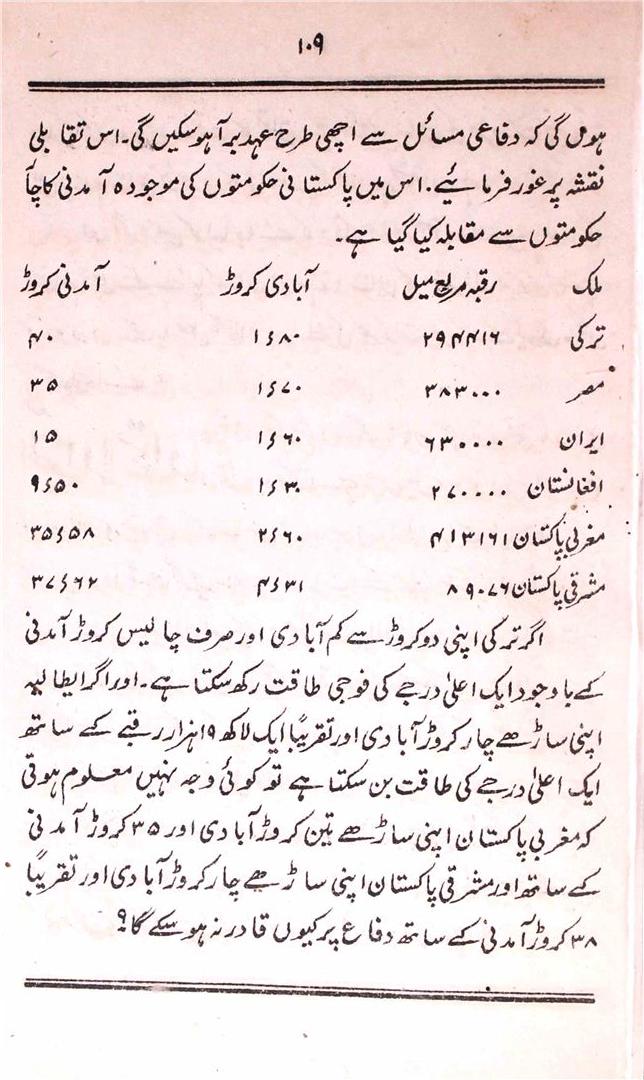 ۱۰۹
ہوں گی کہ دفاعی مسائل سے اچھی طرح عہدبرآ ہوسکیں گی۔ اس تقابلی
نقشہ پر غور فرمائیے۔ اس میں پاکستانی حکومتوں کی موجودہ آمدنی کا چا
حکومتوں سے مقابلہ کیا گیا ہے۔
ملک رقبہ مربع میل آبادی کروڑ آمدنی کروڑ
ترکی ۲۹۴۴۱۶ ۱٫۸۰ ۴۰
مصر ۳۸۳۰۰۰ ۱٫۷۰ ۳۵
ایران ۶۳۰۰۰۰ ۱٫۶۰ ۱۵
افغانستان ۲۷۰۰۰۰ ۱٫۳۰ ۹٫۵۰
مغربی پاکستان ۴۱۳۱۶۱ ۲٫۶۰ ۳۵٫۵۸
مشرقی پاکستان ۸۹۰۷۶ ۴٫۳۱ ۳۷٫۶۲
اگر ترکی اپنی دو کروڑ سے کم آبادی اور صرف چالیس کروڑ آمدنی
کے باوجود ایک اعلیٰ درجے کی فوجی طاقت رکھ سکتا ہے۔ اور اگر ایطالیہ
اپنی ساڑھے چار کروڑ آبادی اور تقریباً ایک لاکھ ۱۹ ہزار رقبے کے ساتھ
ایک اعلیٰ درجے کی طاقت بن سکتا ہے تو کوئی وجہ نہیں معلوم ہوتی
کہ مغربی پاکستان اپنی ساڑھے تین کروڑ آبادی اور ۳۵ کروڑ آمدنی
کے ساتھ اور مشرقی پاکستان اپنی ساڑھے چار کروڑ آبادی اور تقریباً
۳۸ کروڑ آمدنی کے ساتھ دفاع پر کیوں قادر نہ ہوسکے گا؟